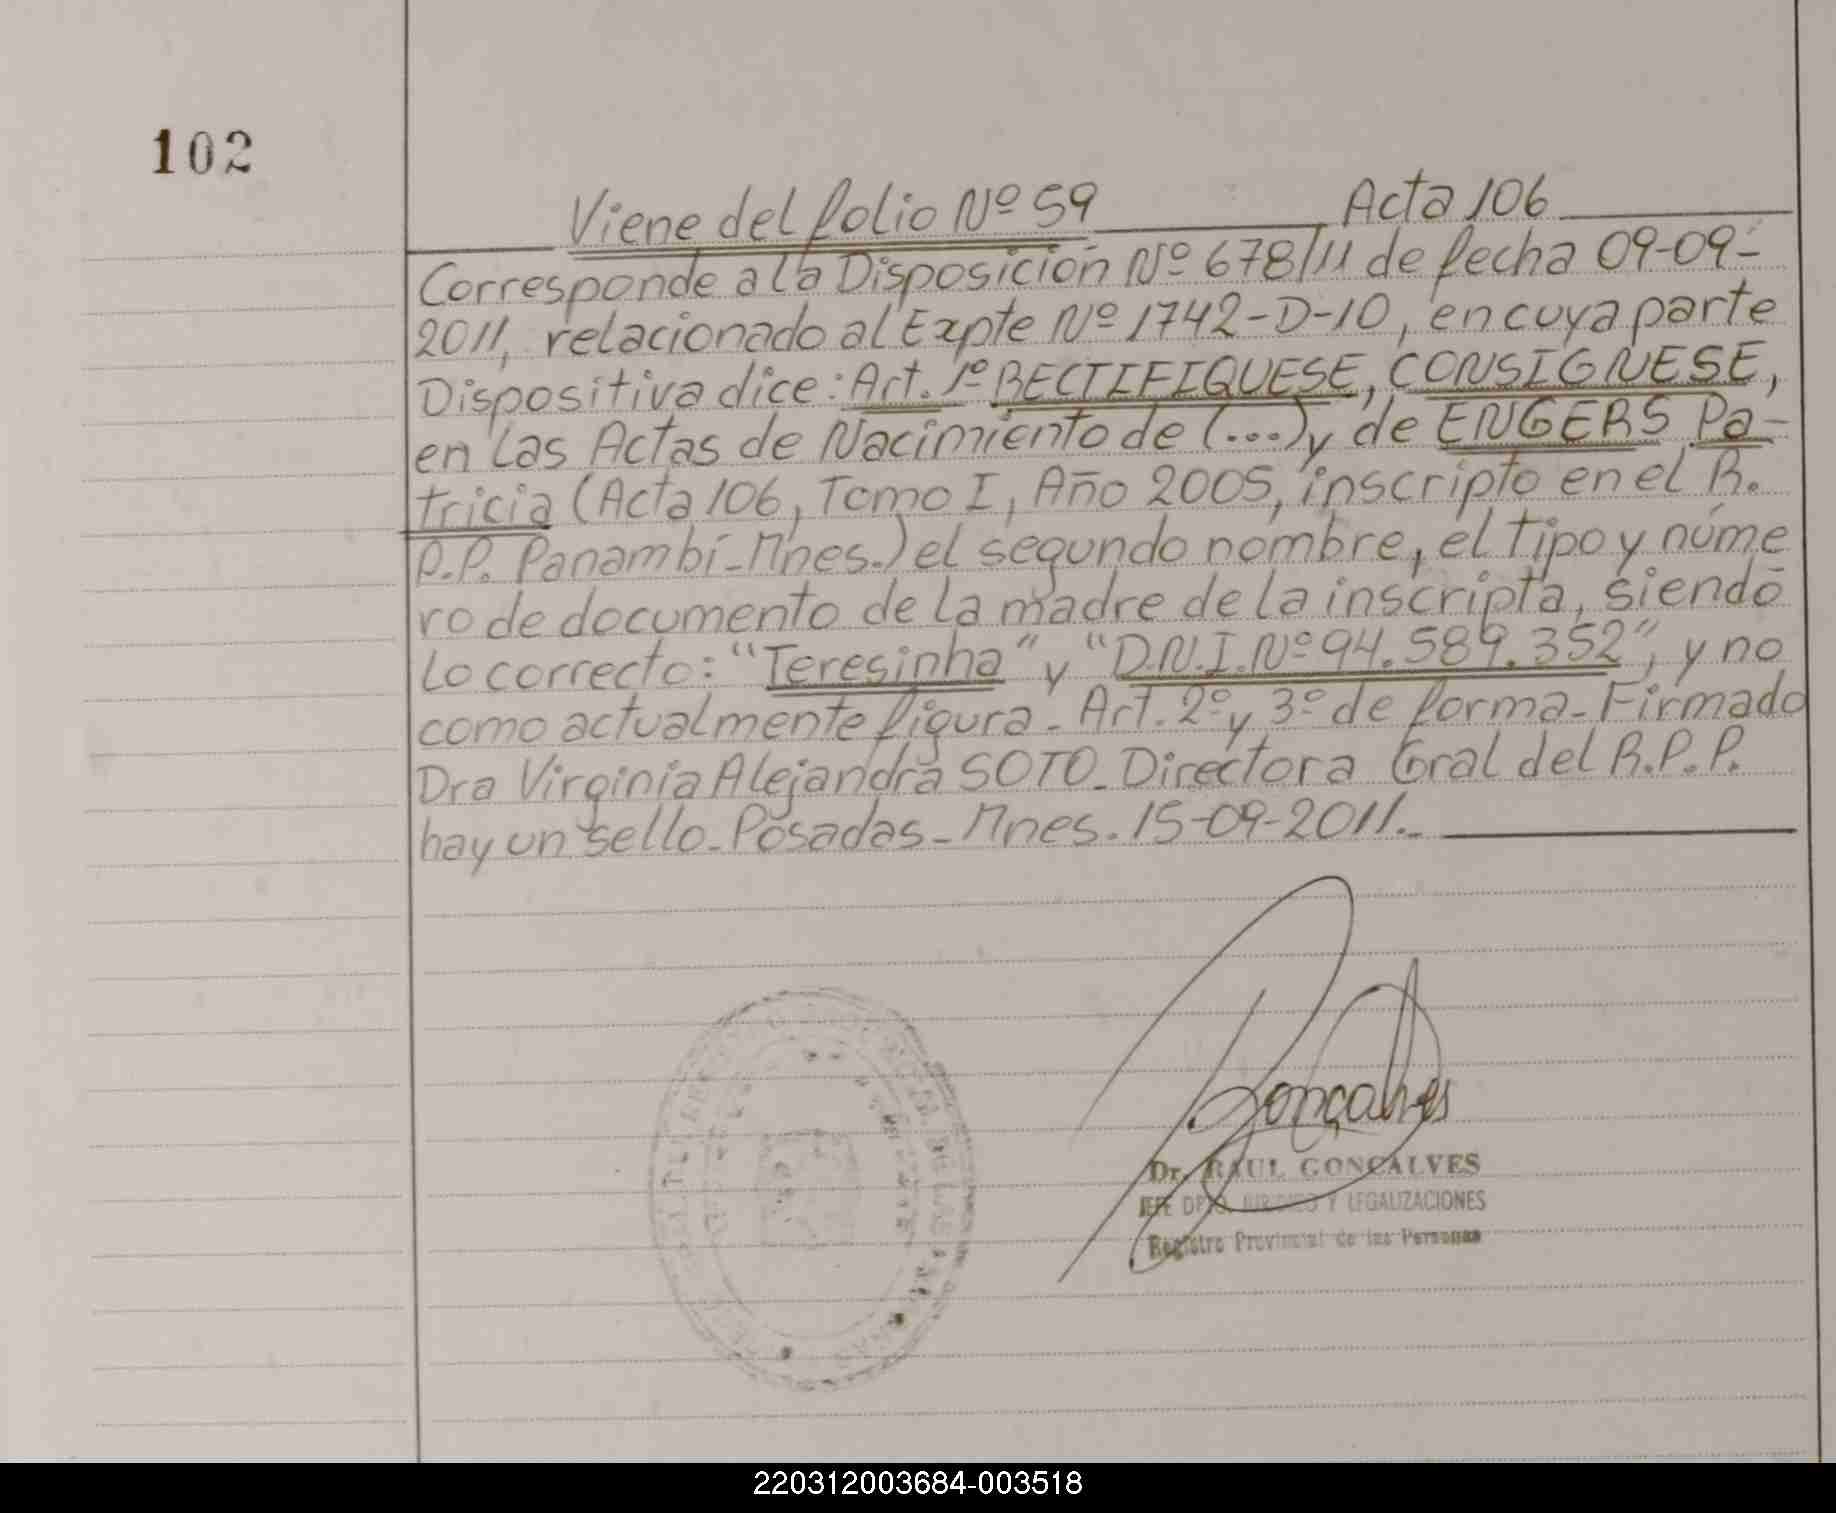 102
Viene del folio Nº 59 Acta 106
Corresponde a la Disposición Nº 678/11 de fecha 09-09-
2011, relacionado al Expte Nº 1742-D-10, en cuya parte
Dispositiva dice: Art. 1º RECTIFIQUESE, CONSIGNESE,
en las Actas de Nacimiento de (...) y de ENGERS Pa-
tricia (Acta 106, Tomo I, Año 2005, inscripto en el R.
P.P. Panambí-Mnes.) el segundo nombre, el tipo y núme
ro de documento de la madre de la inscripta, siendo
lo correcto: "Teresinha" y "D.N.I. Nº 94.589.352", y no
como actualmente figura - Art. 2º y 3º de forma - Firmado
Dra Virginia Alejandra SOTO - Directora Gral del R.P.P.
hay un sello - Posadas - Mnes. 15-09-2011.-
Gonçalves
Dr. RAUL GONCALVES
JEFE DPTO. JURIDICO Y LEGALIZACIONES
Registro Provincial de las Personas
220312003684-003518